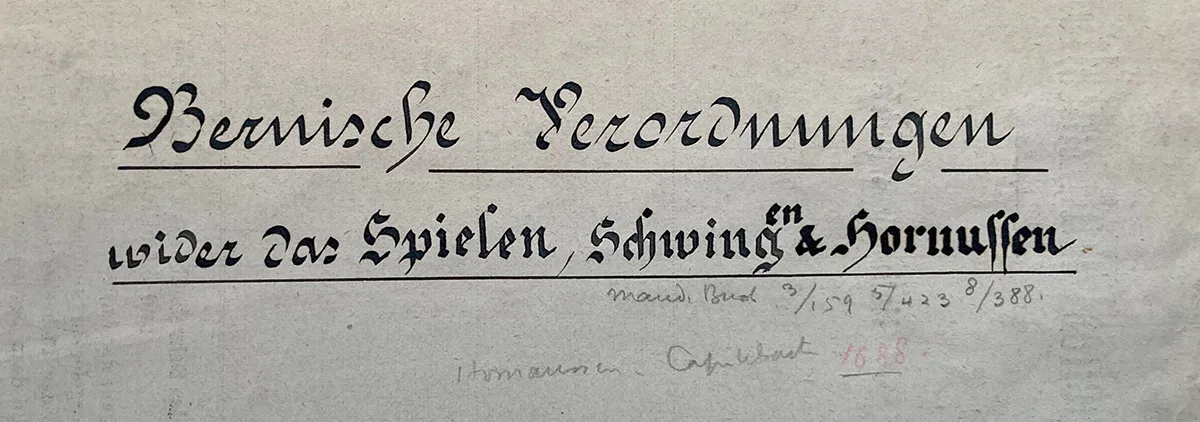 Bernische Verordnungen
wider das Spielen, Schwingen & Hornussen
Mand. Buch 3/159 5/423 8/388.
Hornussen. 1688.